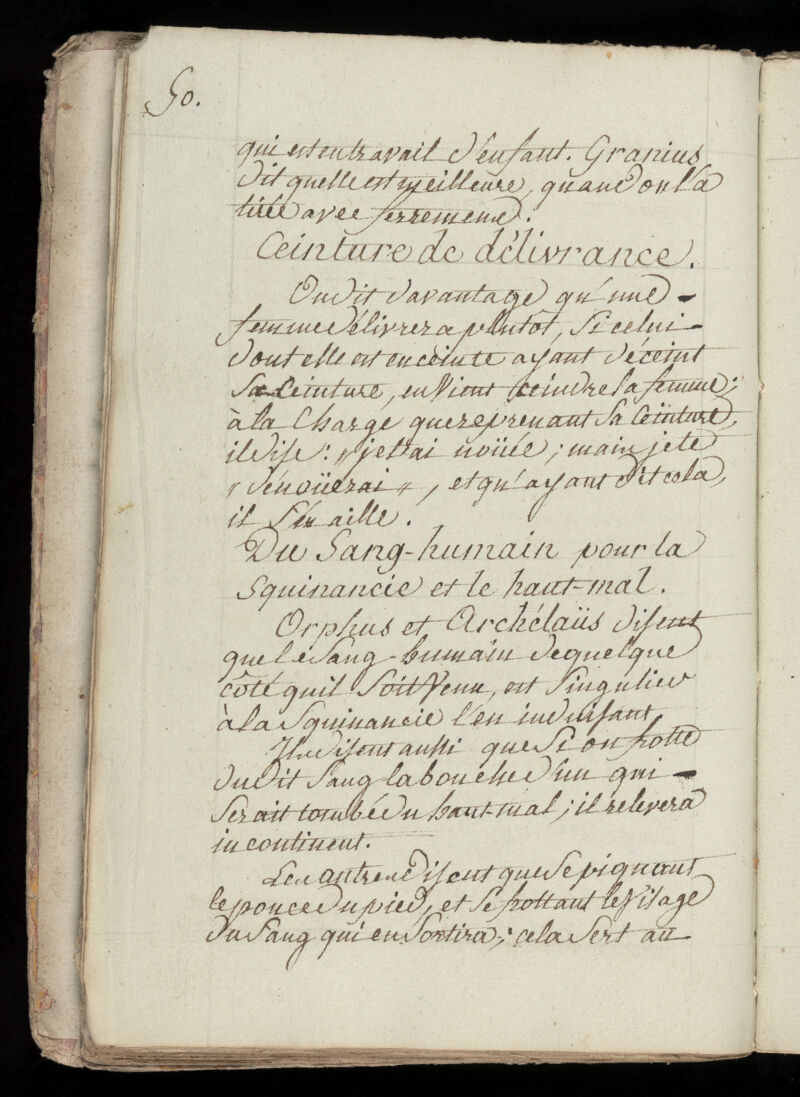 50.
qui est en travail d'enfant. Granius
dit quelle est meilleure, quand on l'a
tirée avec ferrement.
Ceinture de délivrance.
On dit davantage qu'une
femme délivrera plutôt, si celui
dont elle est enceinte ayant déceint
sa Ceinture, en vient ceindre la femme;
à la Charge que reprenant sa Ceinture,
il dise: „ je t'ai noüée; mais je te
„ dénoüerai „, et qu'ayant dit cela,
il s'en aille.
Du Sang-humain pour la
Squinancie et le haut-mal.
Orphus et Archélaüs disent
que le Sang-humain de quelque
côté qu'il soit venu, est singulier
à la Squinancie l'en induisant
Ils disent aussi que si on frotte
du dit sang la bouche d'un qui
serait tombé du haut-mal; il relevera
incontinent.
Les autres disent que se pignant
le pouce du pied, et se frottant le visage
du sang qui en sortira; cela sert au